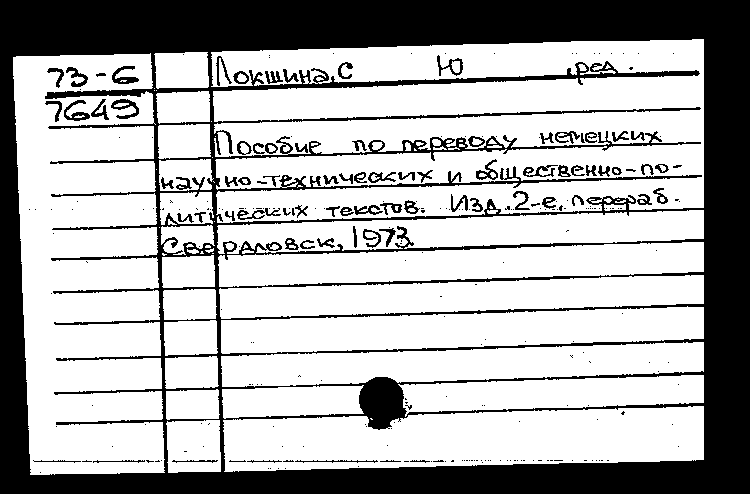 73-6 Локшина, С Ю ,ред.
7649
Пособие по переводу немецких
научно-технических и общественно-по-
литических текстов. Изд. 2-е, перераб.
Свердловск, 1973